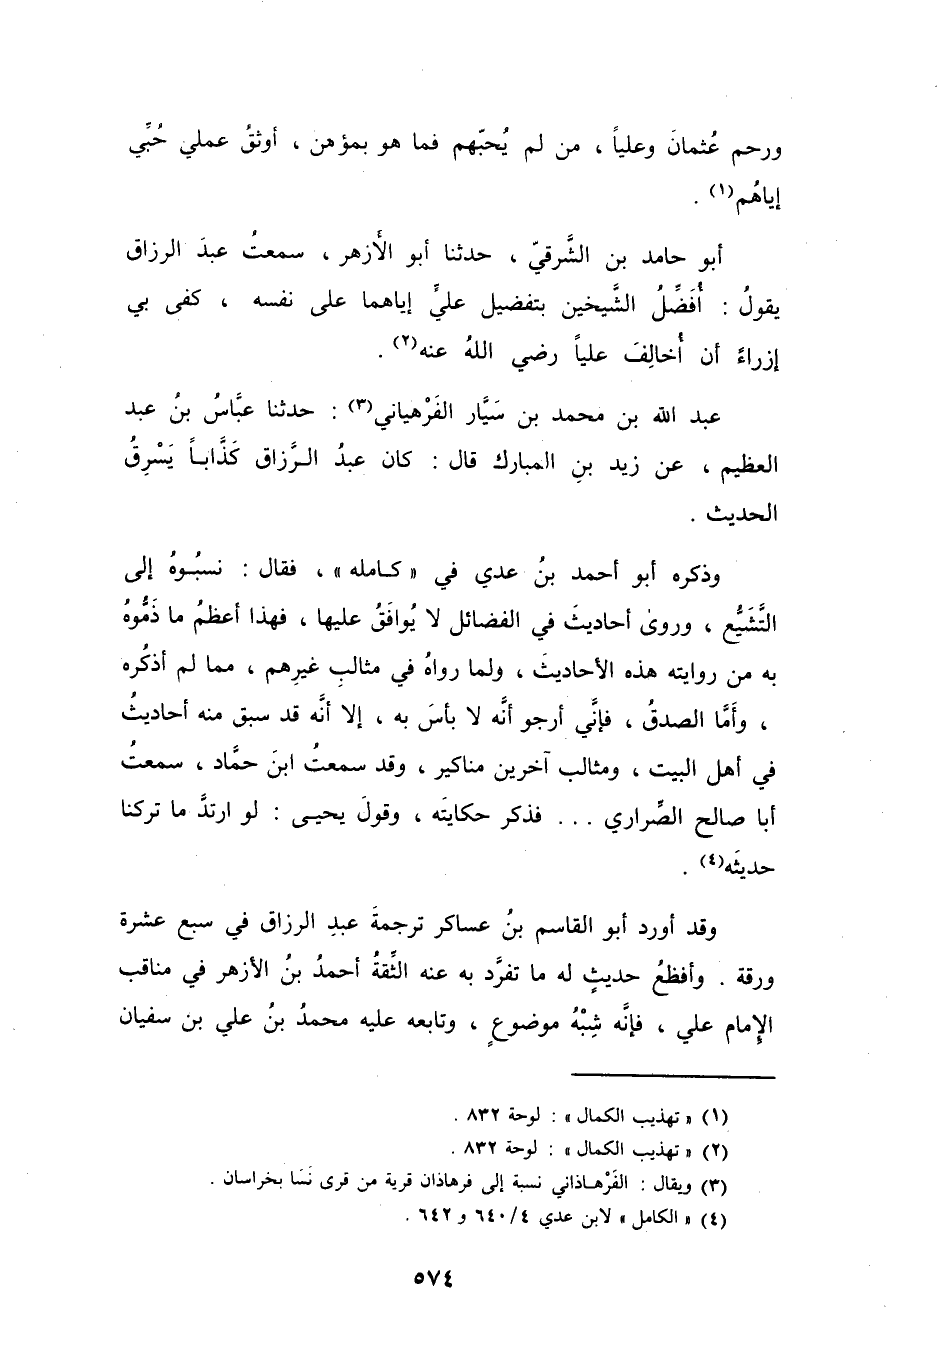 ورحم عُثمانَ وعلياً ، من لم يُحبّهم فما هو بمؤهن ، أوثقُ عملي حُبِّي
إياهُم(١) .
أبو حامد بن الشَّرقيّ ، حدثنا أبو الأَزهر ، سمعتُ عبدَ الرزاق
يقولُ : أُفَضِّلُ الشَّيخين بتفضيل عليٍّ إياهما على نفسه ، كفى بي
إزراءً أن أُخالِفَ علياً رضي اللهُ عنه(٢) .
عبد الله بن محمد بن سَيَّار الفَرْهياني(٣) : حدثنا عبَّاسُ بنُ عبد
العظيم ، عن زيد بنِ المبارك قال : كان عبدُ الرَّزاق كَذَّاباً يَسْرِقُ
الحديث .
وذكره أبو أحمد بنُ عدي في « كامله » ، فقال : نسبُوهُ إلى
التَّشَيُّع ، وروى أحاديثَ في الفضائل لا يُوافَقُ عليها ، فهذا أعظمُ ما ذَمُّوهُ
به من روايته هذه الأحاديثَ ، ولما رواهُ في مثالبِ غيرِهم ، مما لم أذكُره
، وأَمَّا الصدقُ ، فإنَّي أرجو أنَّه لا بأسَ به ، إلا أنَّه قد سبق منه أحاديثُ
في أهل البيت ، ومثالب آخرين مناكير ، وقد سمعتُ ابنَ حمَّاد ، سمعتُ
أبا صالح الصِّراري . . . فذكر حكايتَه ، وقولَ يحيى : لو ارتدَّ ما تركنا
حديثَه(٤) .
وقد أورد أبو القاسم بنُ عساكر ترجمةَ عبدِ الرزاق في سبع عشرة
ورقة . وأفظعُ حديثٍ له ما تفرَّد به عنه الثِّقةُ أحمدُ بنُ الأزهر في مناقب
الإِمام علي ، فإنَّه شِبْهُ موضوعٍ ، وتابعه عليه محمدُ بنُ علي بن سفيان
(١) « تهذيب الكمال » : لوحة ٨٣٢ .
(٢) « تهذيب الكمال » : لوحة ٨٣٢ .
(٣) ويقال : الفَرْهاذاني نسبة إلى فرهاذان قرية من قرى نَسَا بخراسان .
(٤) « الكامل » لابن عدي ٦٤٠/٤ و ٦٤٢ .
٥٧٤